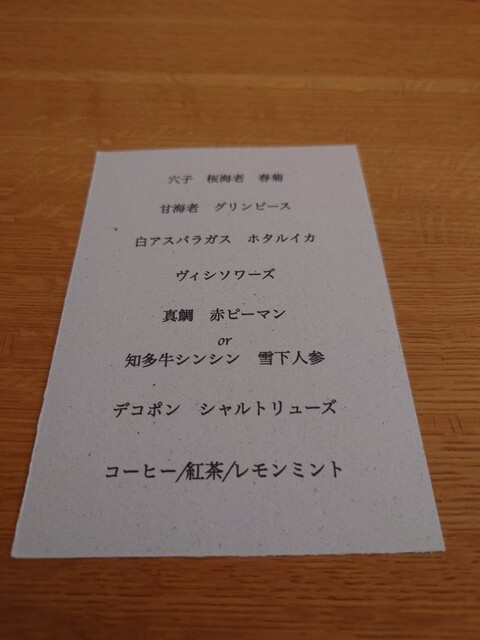 穴子　桜海老　春菊
甘海老　グリンピース
白アスパラガス　ホタルイカ
ヴィシソワーズ
真鯛　赤ピーマン
or
知多牛シンシン　雪下人参
デコポン　シャルトリューズ
コーヒー/紅茶/レモンミント